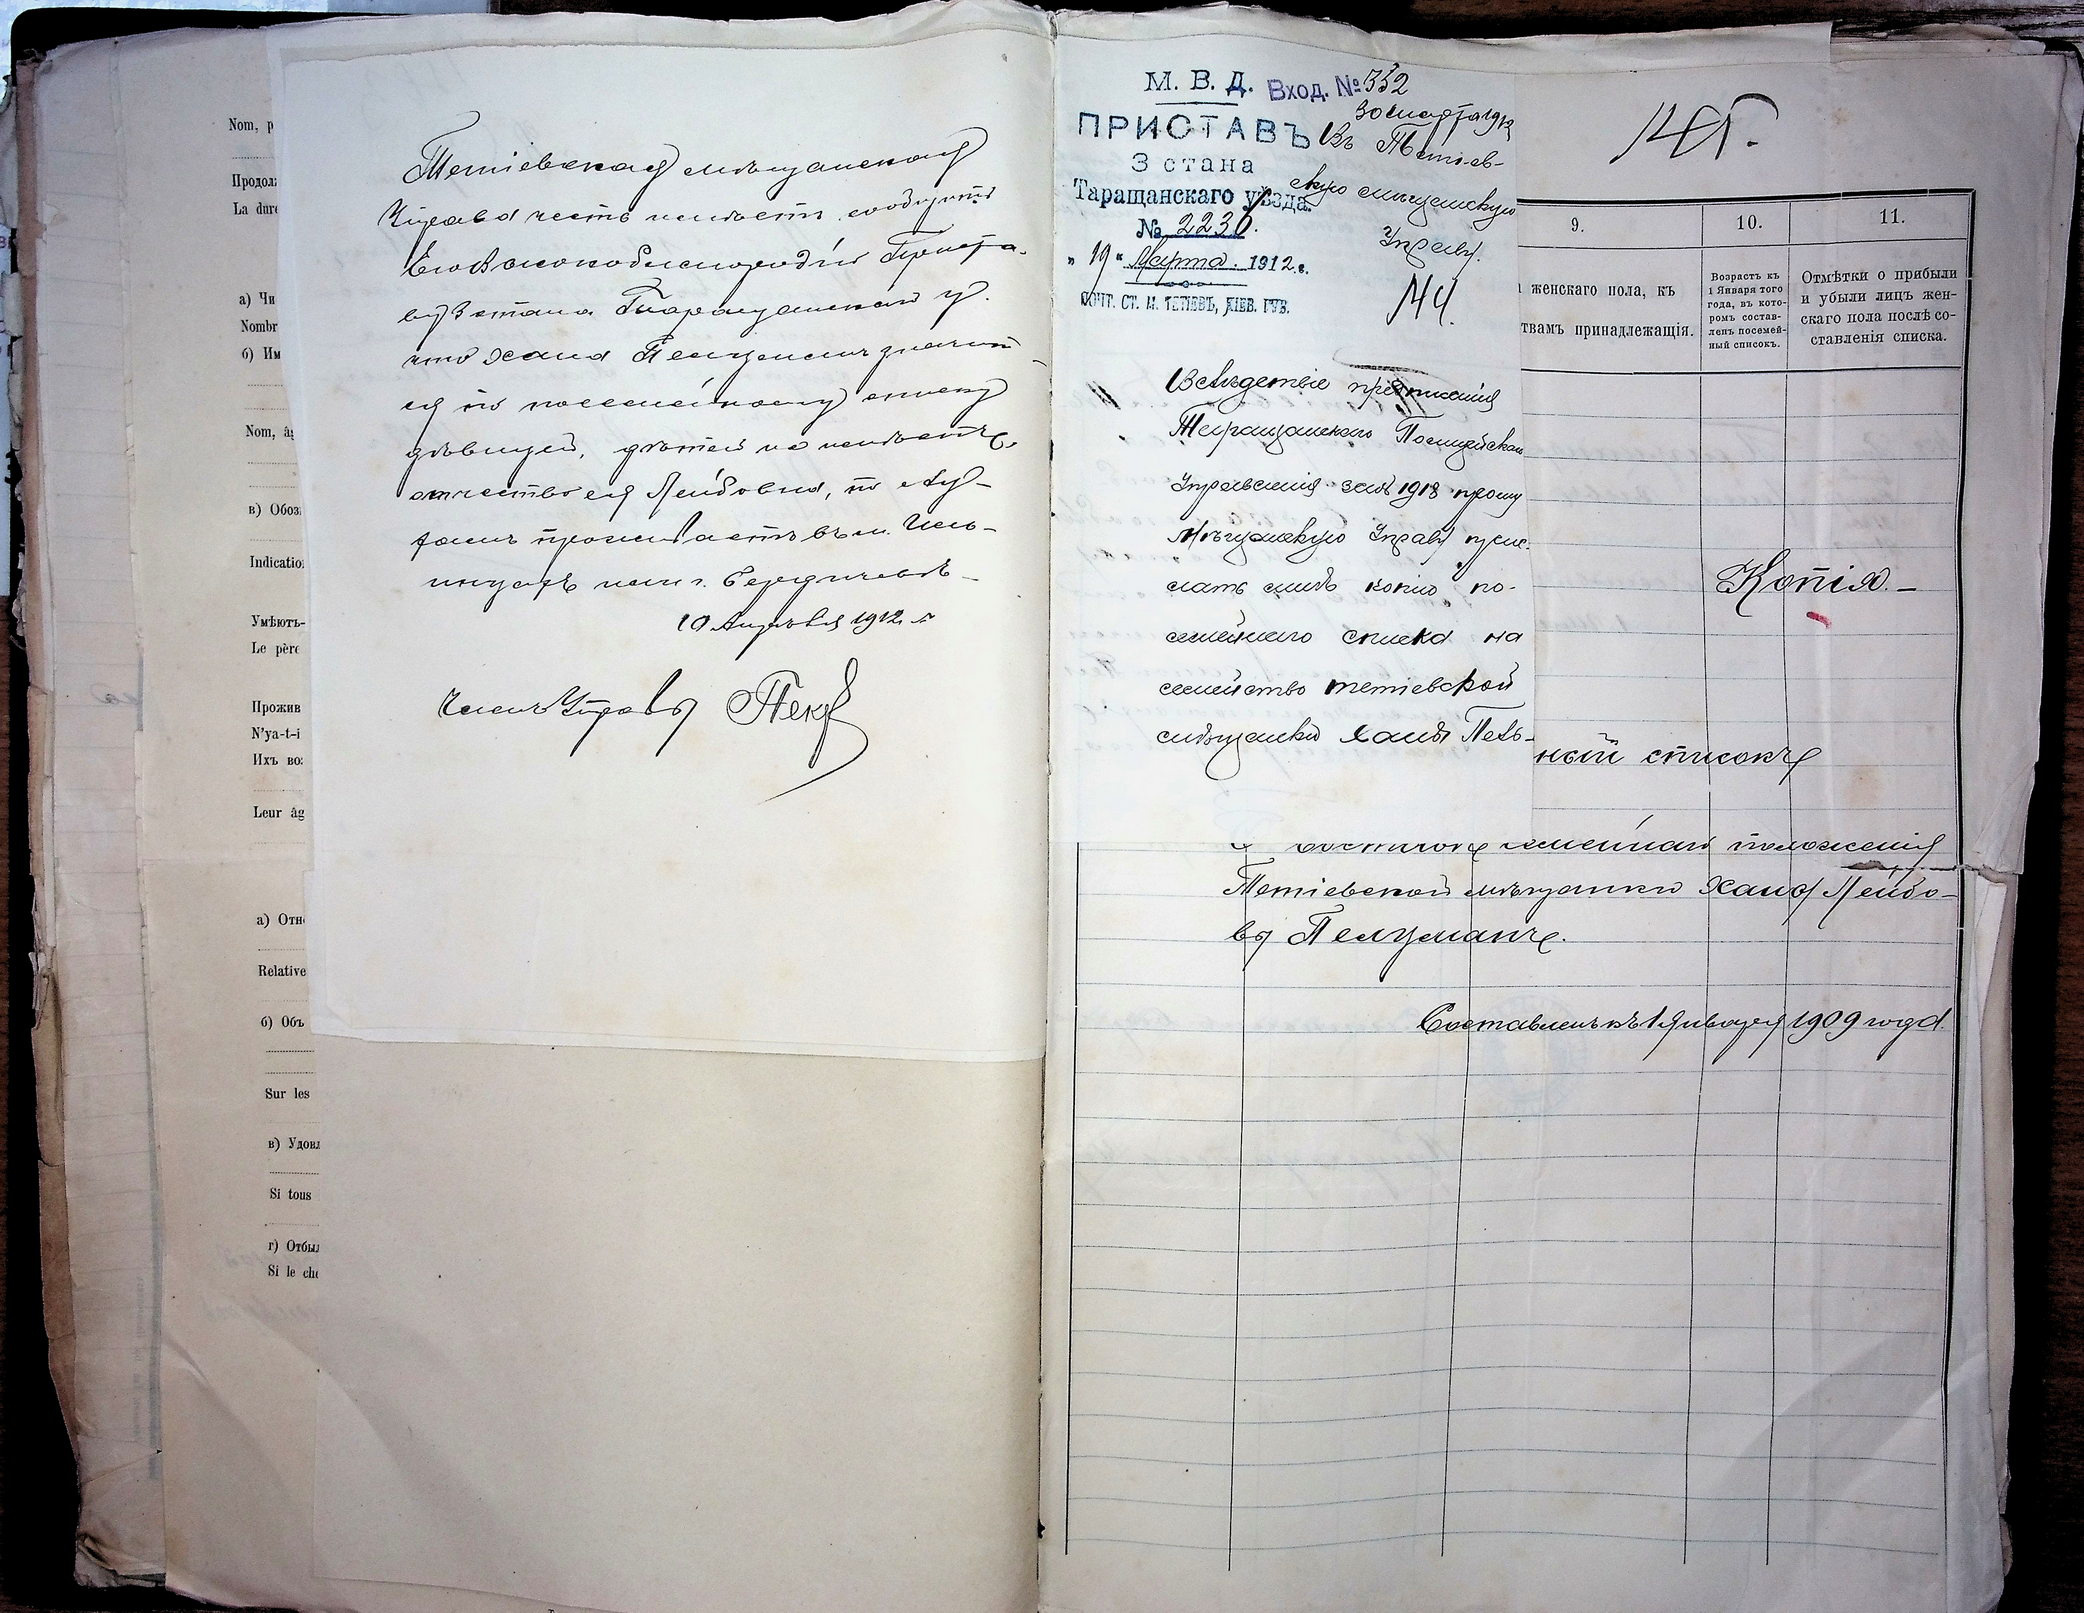 Nom, p
Продол
La duré
а) Чи
Nombr
б) Им
Nom, âg
в) Обоз
Indicatio
Умѣютъ-
Le père
Прожив
N'ya-t-i
Ихъ во
Leur âg
а) Отн
Relative
б) Объ
Sur les
в) Удовл
Si tous
г) Отбы
Si le che
Тетіевская мѣщанская
Управа честь имѣетъ сообщить
Его Высокоблагородію Приста-
ву 3 стана Таращанскаго у.
что Хана Пельцманъ значит
ся по посемейному списку
дѣвицей, дѣтей не имѣетъ,
отчество ея Лейбовна, по слу-
хамъ проживаетъ въ м.
или г. Бердичевѣ
10 Апрѣля 1912 г.
Членъ Управы
М. В. Д.
ПРИСТАВЪ
3 стана
Таращанскаго уѣзда.
№ 2236.
„19“ Марта 1912 г.
ПОЧТ. СТ. М. ТЕТІЕВЪ, КІЕВ. ГУБ.
Вход. № 352
30 марта 1912
Въ Тетіев-
скую мѣщанскую
Управу.
144.
Вслѣдствіе предписанія
Таращанскаго Полицейскаго
Управленія за № 1918 прошу
Мѣщанскую Управу
слать мнѣ копію по-
семейнаго списка на
семейство тетіевской
мѣщанки Ханы Пель-
145.
9.
10.
11.
женскаго пола, къ
твамъ принадлежащія.
Возрастъ къ
1 Января того
года, въ кото-
ромъ состав-
ленъ посемей-
ный списокъ.
Отмѣтки о прибыли
и убыли лицъ жен-
скаго пола послѣ со-
ставленія списка.
Копія.-
ный списокъ
семейнаго положенія
Тетіевской мѣщанки Ханы Лейбо-
вы Пельцманъ.
Составленъ къ 1 января 1909 года